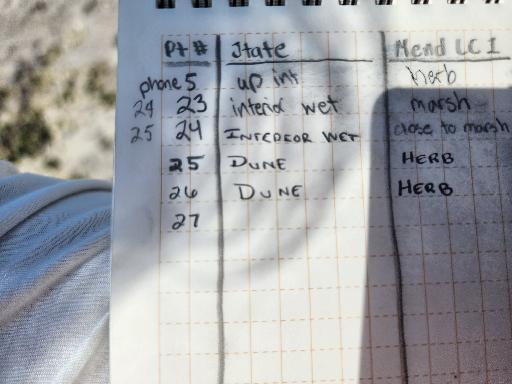 Pt # State Mend LCI
phone 5 up int Herb
24 23 interid wet marsh
25 24 INTERIOR WET close to marsh
25 DUNE HERB
26 DUNE HERB
27